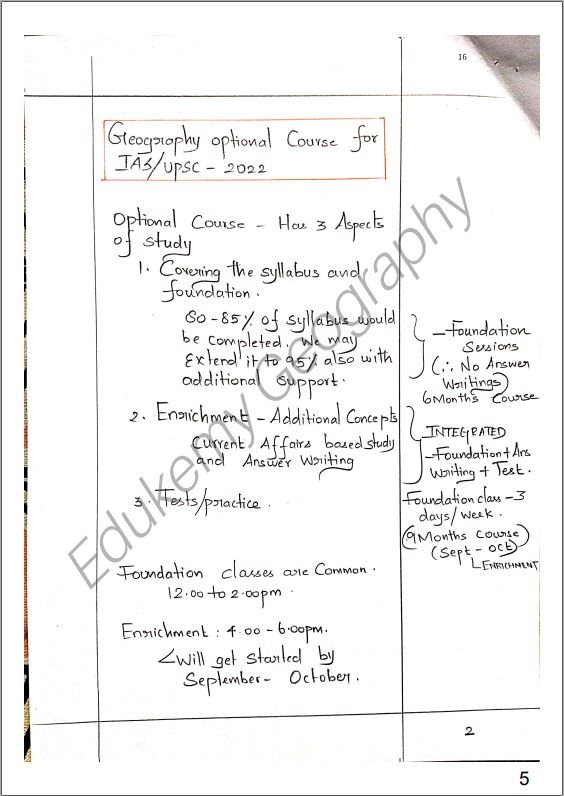 16
Geography optional Course for
IAS/UPSC - 2022
Optional Course - Has 3 Aspects
of study
1. Covering the syllabus and
foundation.
80-85% of syllabus would
be completed. We may
Extend it to 95% also with
additional support.
- Foundation
Sessions
(∴ No Answer
Writings)
6 Months Course
2. Enrichment - Additional Concepts
Current Affairs based study
and Answer Writing
INTEGRATED
- Foundation + Ans
Writing + Test.
3. Tests/practice.
Foundation class - 3
days/week.
(9 Months Course)
(Sept - Oct)
ENRICHMENT
Foundation classes are Common.
12.00 to 2.00pm.
Enrichment : 4.00 - 6.00pm.
Will get started by
September - October.
2
5
Edukemy Geography